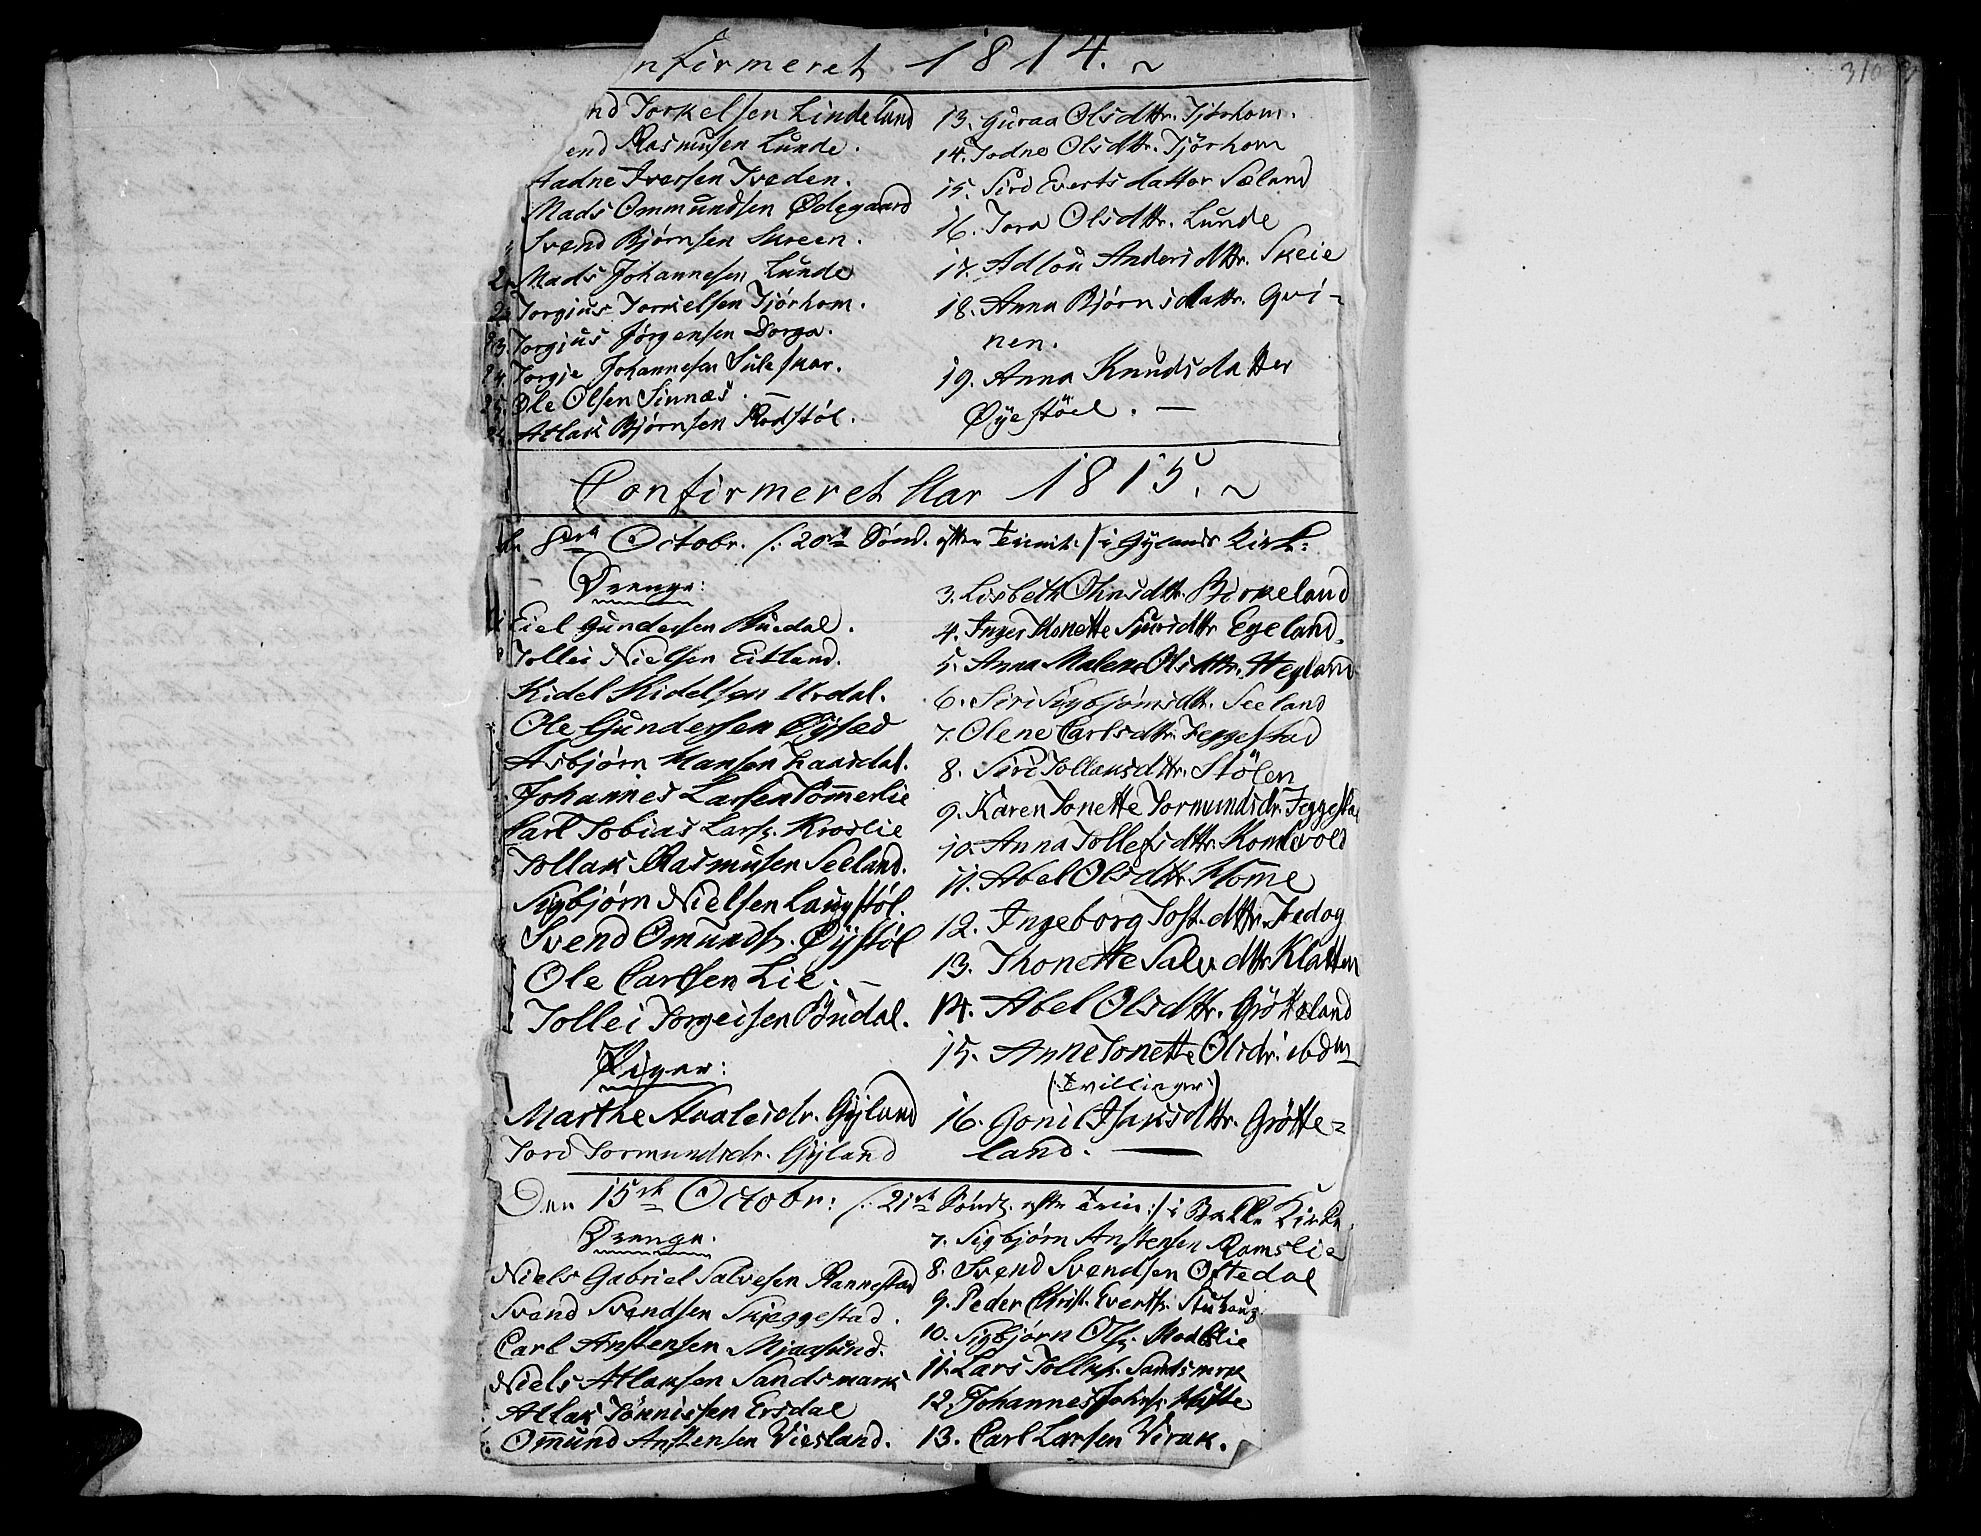 310
nfirmeret 1814.
nd Torkelsen Lindeland
end Rasmusen Lunde.
Aadne Iversen Tveden.
Mads Ommundsen Ødegaard
Svend Bjørnsen
Mads Johannesen Lunde
Torgius Torkielsen Tjórhom.
23. Torgius Jørgensen Dorga.
24. Torgje Johannesen Suleskar.
25. Ole Olsen Sinnæs. —
Atlak Bjørnsen Rostól.
13. Guroa Olsdttr. Tjórhom.
14. Jodne Olsdttr. Tjörhom
15. Siri Evertsdatter Sæland
16. Tora Olsdttr. Lunde
17. Adlou Andersdttr. Skeie
18. Anna Bjørnsdattr. Qvi-
nen.
19. Anna Knudsdatter
Øyestöel. —
Confirmeret Aar 1815.
8de Octobr. /: 20de Sónd. efter Trinit. :/ i Gylands Kirke:
Drenge:
Eiel Gundersen
Tollei Nielsen Eitland.
Kidel Kidelsen Urdal.
Ole Gundersen
Asbjørn Hansen
Johannes Larsen Tom̅erlie
Carl Tobias Lars. Kroslie
Tollak Rasmusen Seeland.
Sigbjørn Nielsen Laugstól.
Svend Omunds. Øystól
Ole Carlsen Lie. —
Tollei Torgeisen
Piger:
Marthe Aualesdr. Gyland
Tord Tormundsdr. Gyland
3. Lisbeth Ohnsdttr. Birkeland
4. Inger Thonette Sjursdttr Egeland.
5. Anna Malene Olsdttr. Heyland
6. Siri Sigbjórnsdtr. Seeland
7. Olene Carlsdttr. Jeggestad
8. Siri Tollaksdttr. Stölen
9. Karen Tonette Tormundsdr. Jeggestad
10. Anna Tollefsdttr. Komlevold
11. Abel Olsdttr. Hom̅e
12. Ingeborg Tost.dttr. Tredog
13. Thonette Salv.dttr. Klatten
14. Abel Olsdttr. Grötteland
15. Anne Tonette Olsdr. ibdm
(:Tvillinger:)
16. Gonil Isaksdttr. Grötte-
land. —
Den 15de Octobr: /: 21de Sóndg. efter Trin :/ i Bakke Kirke
Drenge.
Niels Gabriel Salvesen Rannestad
Svend Svendsen Skjeggestad.
Carl Anstensen Mjaasund.
Niels Atlaksen Sandsmark
Atlak Tónnissen Ersdal
Om̅und Anstensen Viesland.
7. Sigbjørn Anstensen Ramslie
8. Svend Svendsen Oftedal
9. Peder Christ. Everts. Stuhaug
10. Sigbjørn Ols. Moeslie
11. Lars Tollaks. Sandsmrk
12. Johannes Johns.
13. Carl Larsen Virak.